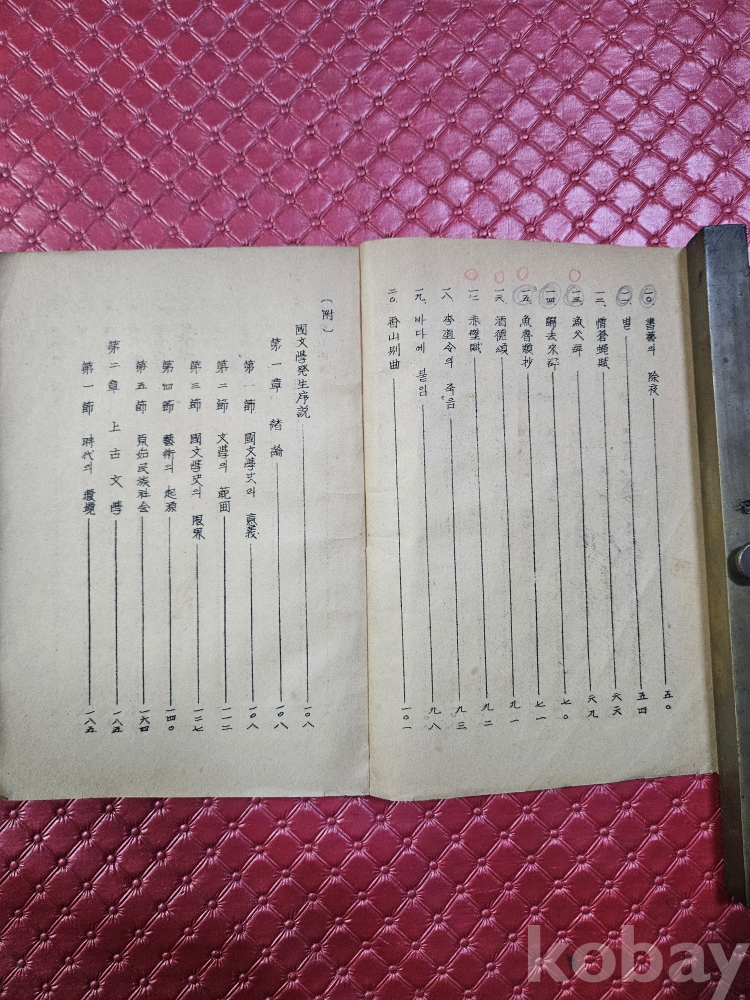 一〇. 書藝의 除夜 五〇
一一. 별 五四
一二. 憎蒼蠅賦 六六
一三. 漁父辭 六九
一四. 歸去來辭 七〇
一五. 魚魯類抄 七一
一六. 酒德頌 九一
赤壁賦 九二
一八. 李道令의 죽음 九三
一九. 바다에 붙임 九八
二〇. 香山別曲 一〇一
(附)
國文學発生序説 一〇八
第一章 緒論 一〇八
第一節 國文學史의 意義 一〇八
第二節 文學의 範囲 一一二
第三節 國文學史의 限界 一二七
第四節 藝術의 起源 一四〇
第五節 原始民族社会 一六四
第二章 上古文學 一八五
第一節 時代의 環境 一八五
kobay